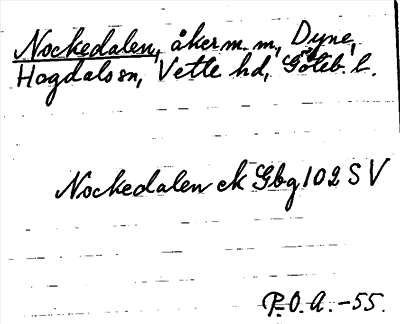 Nockedalen, åker m. m., Dyne,
Hogdals sn, Vette hd, Göteb. l.
Nockedalen ek Gbg 102 SV
P.O.A. -55.